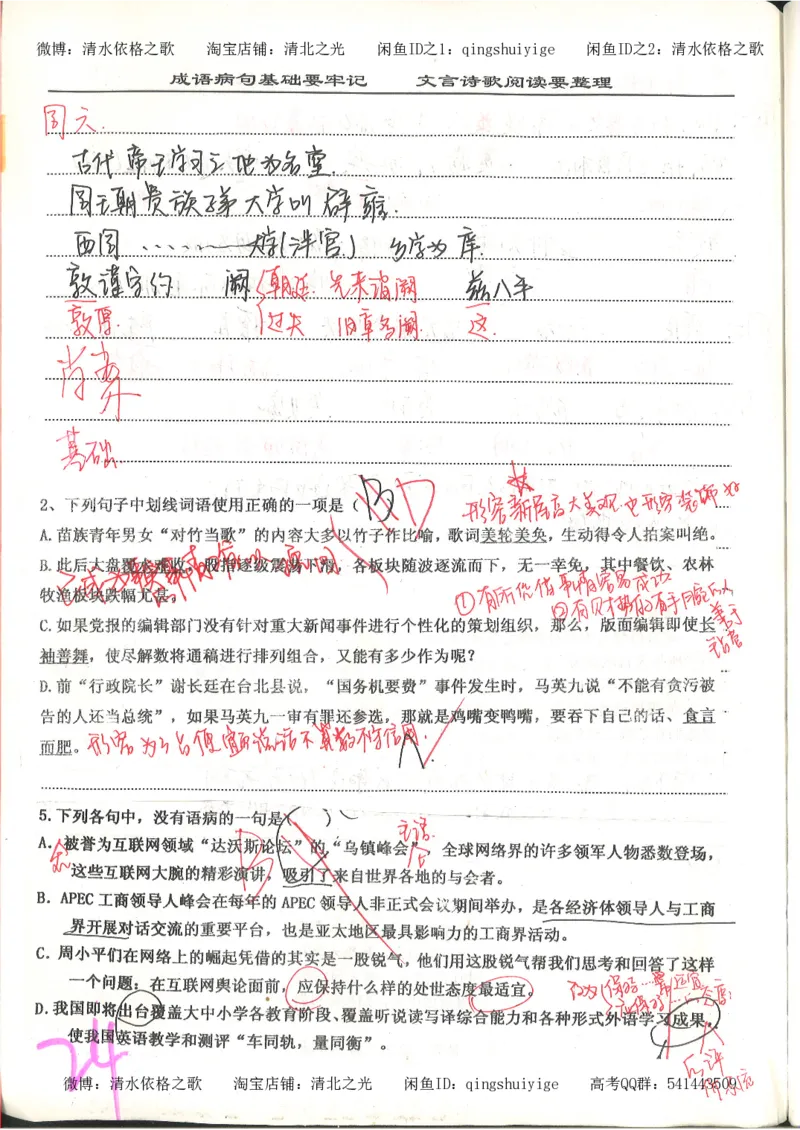 微博：清水依格之歌 淘宝店铺：清北之光 闲鱼ID之1：qingshuiyige 闲鱼ID之2：清水依格之歌
成语病句基础要牢记 文言诗歌阅读要整理
周六.
古代帝王学习之地为名堂.
周王朝贵族子弟大学叫辟雍.
西周 ……… 大学(泮宫) 乡学为庠.
敦谨守约 阙 朝廷. 先来谒阙 兹八年
敦厚. 过失 旧章多阙 这.
基础
2、下列句子中划线词语使用正确的一项是（ B D
形容新屋高大美观也形容装饰
A.苗族青年男女“对竹当歌”的内容大多以竹子作比喻，歌词美轮美奂，生动得令人拍案叫绝。
B.此后大盘覆水难收，股指逐级震荡下滑，各板块随波逐流而下，无一幸免，其中餐饮、农林
牧渔板块跌幅尤甚。
①有所凭借事情容易成功
C.如果党报的编辑部门没有针对重大新闻事件进行个性化的策划组织，那么，版面编辑即使长
袖善舞，使尽解数将通稿进行排列组合，又能有多少作为呢？
D.前“行政院长”谢长廷在台北县说，“国务机要费”事件发生时，马英九说“不能有贪污被
告的人还当总统”，如果马英九一审有罪还参选，那就是鸡嘴变鸭嘴，要吞下自己的话、食言
而肥。形容为了占便宜而说话不算数不守信用.
5.下列各句中，没有语病的一句是（ ）
主语
A．被誉为互联网领域“达沃斯论坛”的“乌镇峰会”，全球网络界的许多领军人物悉数登场，
这些互联网大腕的精彩演讲，吸引了来自世界各地的与会者。
B．APEC工商领导人峰会在每年的APEC领导人非正式会议期间举办，是各经济体领导人与工商
界开展对话交流的重要平台，也是亚太地区最具影响力的工商界活动。
C．周小平们在网络上的崛起凭借的其实是一股锐气，他们用这股锐气帮我们思考和回答了这样
一个问题：在互联网舆论面前，应保持什么样的处世态度最适宜。
D.我国即将出台覆盖大中小学各教育阶段、覆盖听说读写译综合能力和各种形式外语学习成果，
使我国英语教学和测评“车同轨，量同衡”。
24
微博：清水依格之歌 淘宝店铺：清北之光 闲鱼ID：qingshuiyige 高考QQ群：541443509